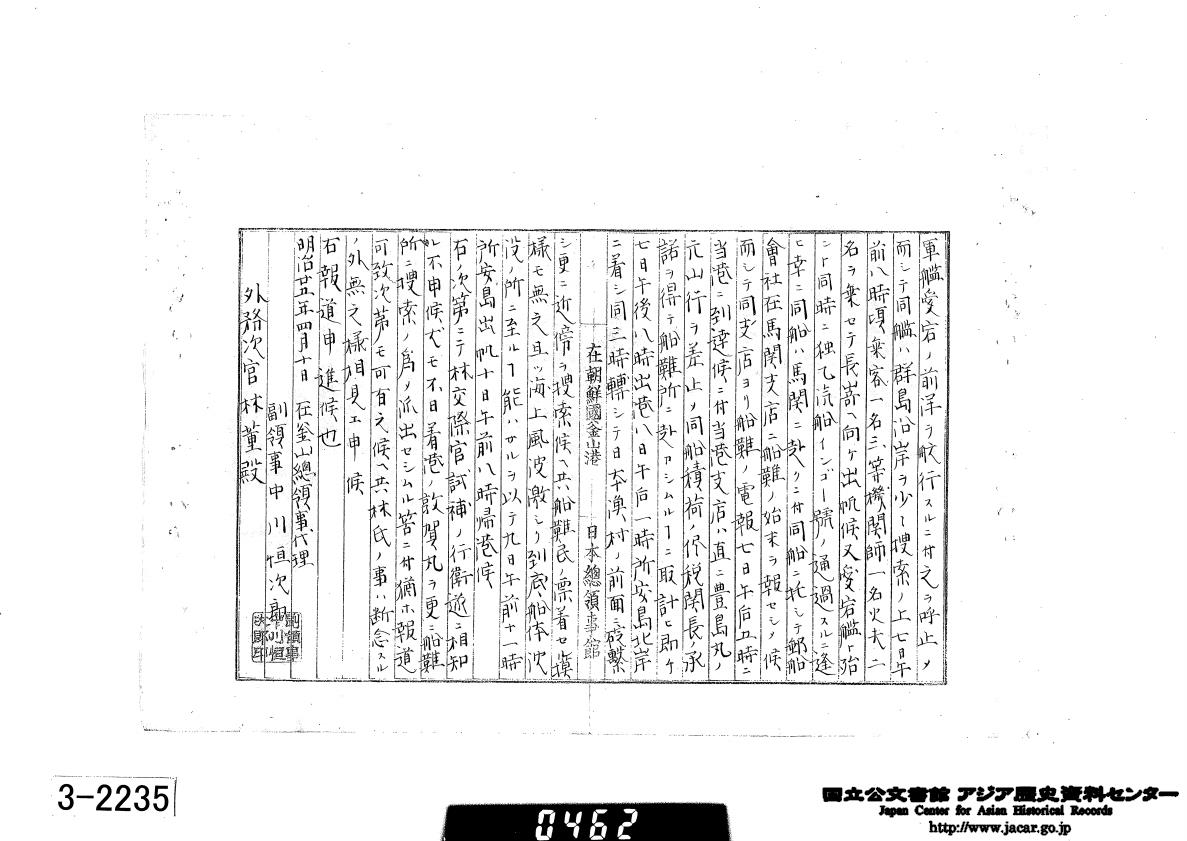 軍艦愛宕ノ前洋ヲ航行スルニ付之ヲ呼止メ
而シテ同艦ハ群島沿岸ヲ少シ捜索ノ上七日午
前八時頃乗客一名三等機関師一名火夫二
名ヲ乗セテ長崎ヘ向ケ出帆候又愛宕艦ト殆
ント同時ニ独乙汽船インゴー號ノ通過スルニ逢
ヒ幸ニ同船ハ馬関ニ赴クニ付同船ニ托シテ郵船
會社在馬関支店ニ船難ノ始末ヲ報セシメ候
而シテ同支店ヨリ船難ノ電報七日午后五時ニ
当港ニ到達候ニ付当港支店ハ直ニ豊島丸ノ
元山行ヲ差止メ同船積荷ノ保税関長ノ承
諾ヲ得テ船難所ニ赴カシムルヿニ取計ヒ即ケ
七日午後八時出港八日午后一時所安島北岸
ニ着シ同三時轉シテ日本漁村ノ前面ニ碇繋
在朝鮮國釜山港 日本總領事館
シ更ニ近傍ヲ捜索候ヘ共船難民ノ漂着セシ模
様モ無之且ツ海上風波激シク到底船体沈
没ノ所ニ至ルヿ能ハサルヲ以テ九日午前十一時
所安島出帆十日午前八時帰港候
右ノ次第ニテ林交際官試補ノ行衛遂ニ相知
レ不申候尤モ不日着港ノ敦賀丸ヲ更ニ船難
所ニ捜索ノ為メ派出セシムル筈ニ付猶ホ報道
可致次第モ可有之候ヘ共林氏ノ事ハ断念スル
ノ外無之様相見エ申候
右報道申進候也
明治廿五年四月十日 在釜山總領事代理
副領事中川恒次郎
外務次官林董殿
3-2235
0462
国立公文書館 アジア歴史資料センター
Japan Center for Asian Historical Records
http://www.jacar.go.jp